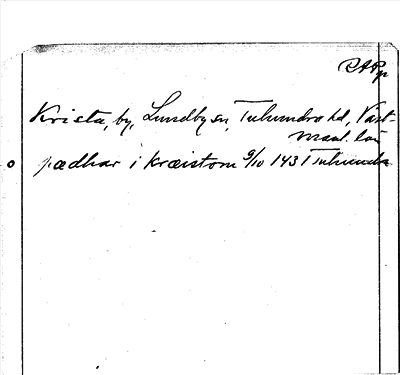 SRAp
Krista, by, Lundby sn, Tuhundra hd, Väst-
manl. län
pædhar i kræistom 9/10 1431 Tuhundra